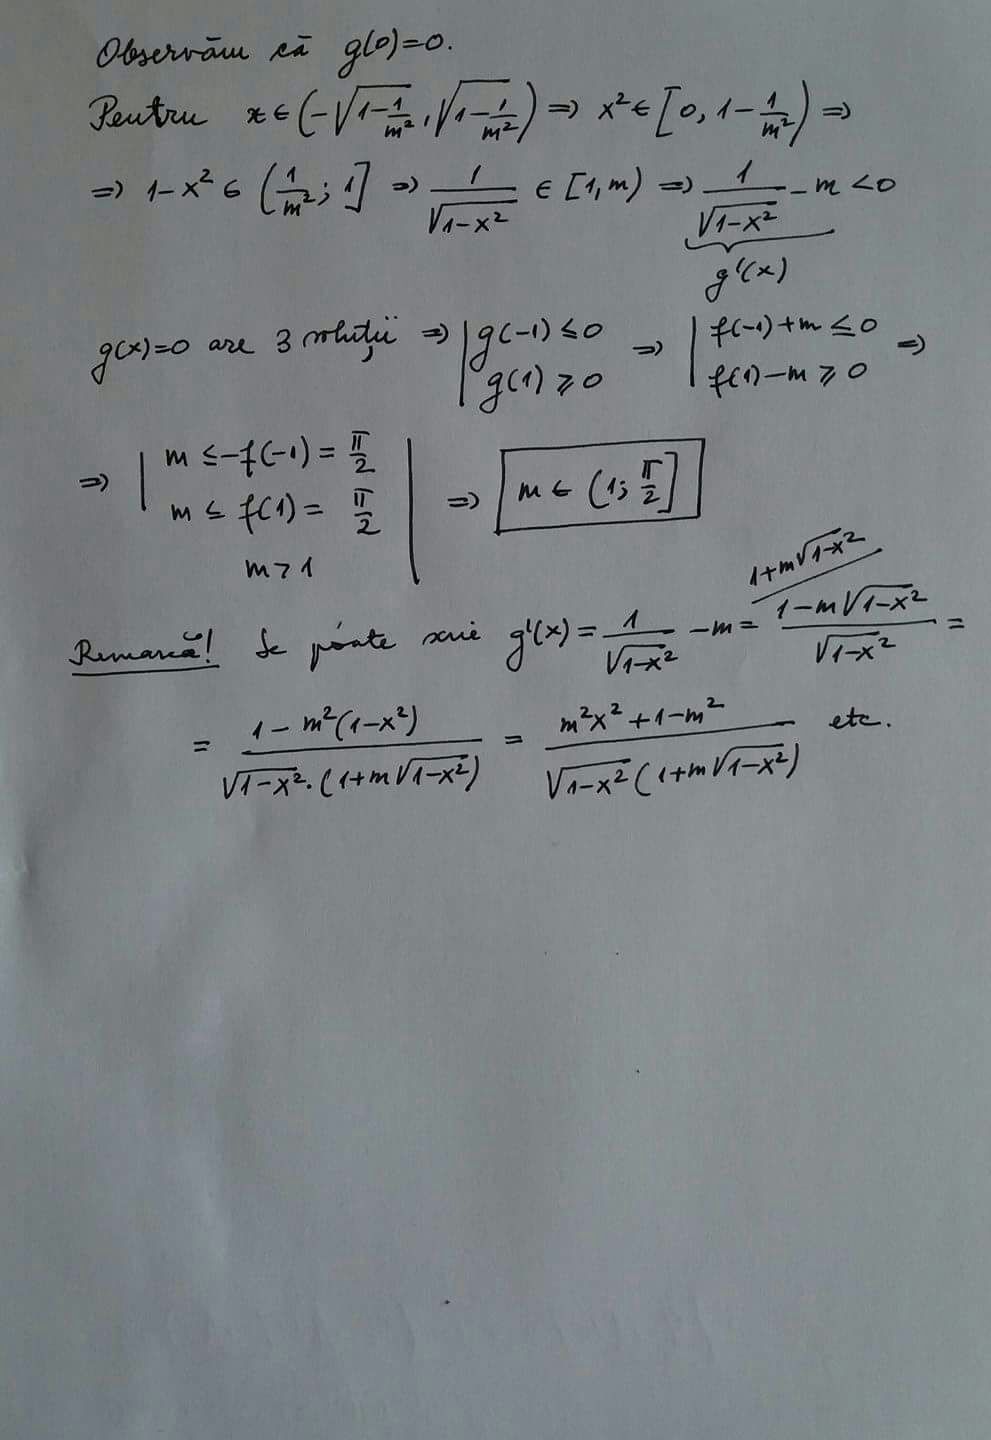 Observăm că g(0)=0.
Pentru x∈(-√(1-1/m²), √(1-1/m²)) ⇒ x²∈[0, 1-1/m²) ⇒
⇒ 1-x² ∈ (1/m²; 1] ⇒ 1/√(1-x²) ∈ [1,m) ⇒ 1/√(1-x²) - m <0
g'(x)
g(x)=0 are 3 soluții ⇒ | g(-1) ≤0 ⇒ | f(-1)+m ≤ 0 ⇒
g(1) ≥ 0 f(1)-m ≥ 0
⇒ | m ≤ -f(-1) = π/2
m ≤ f(1) = π/2 | ⇒ m ∈ (1; π/2]
m > 1
1+m√(1-x²)
Remarcă! Se poate scrie g'(x) = 1/√(1-x²) - m = (1-m√(1-x²))/√(1-x²) =
= (1 - m²(1-x²))/(√(1-x²)·(1+m√(1-x²))) = (m²x²+1-m²)/(√(1-x²)(1+m√(1-x²))) etc.